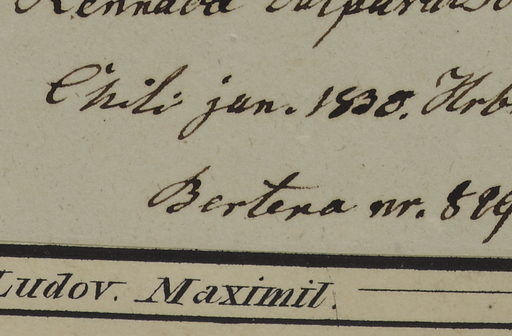 Chili jan. 1830. Hrb
Bertera nr. 899
Ludov. Maximil.